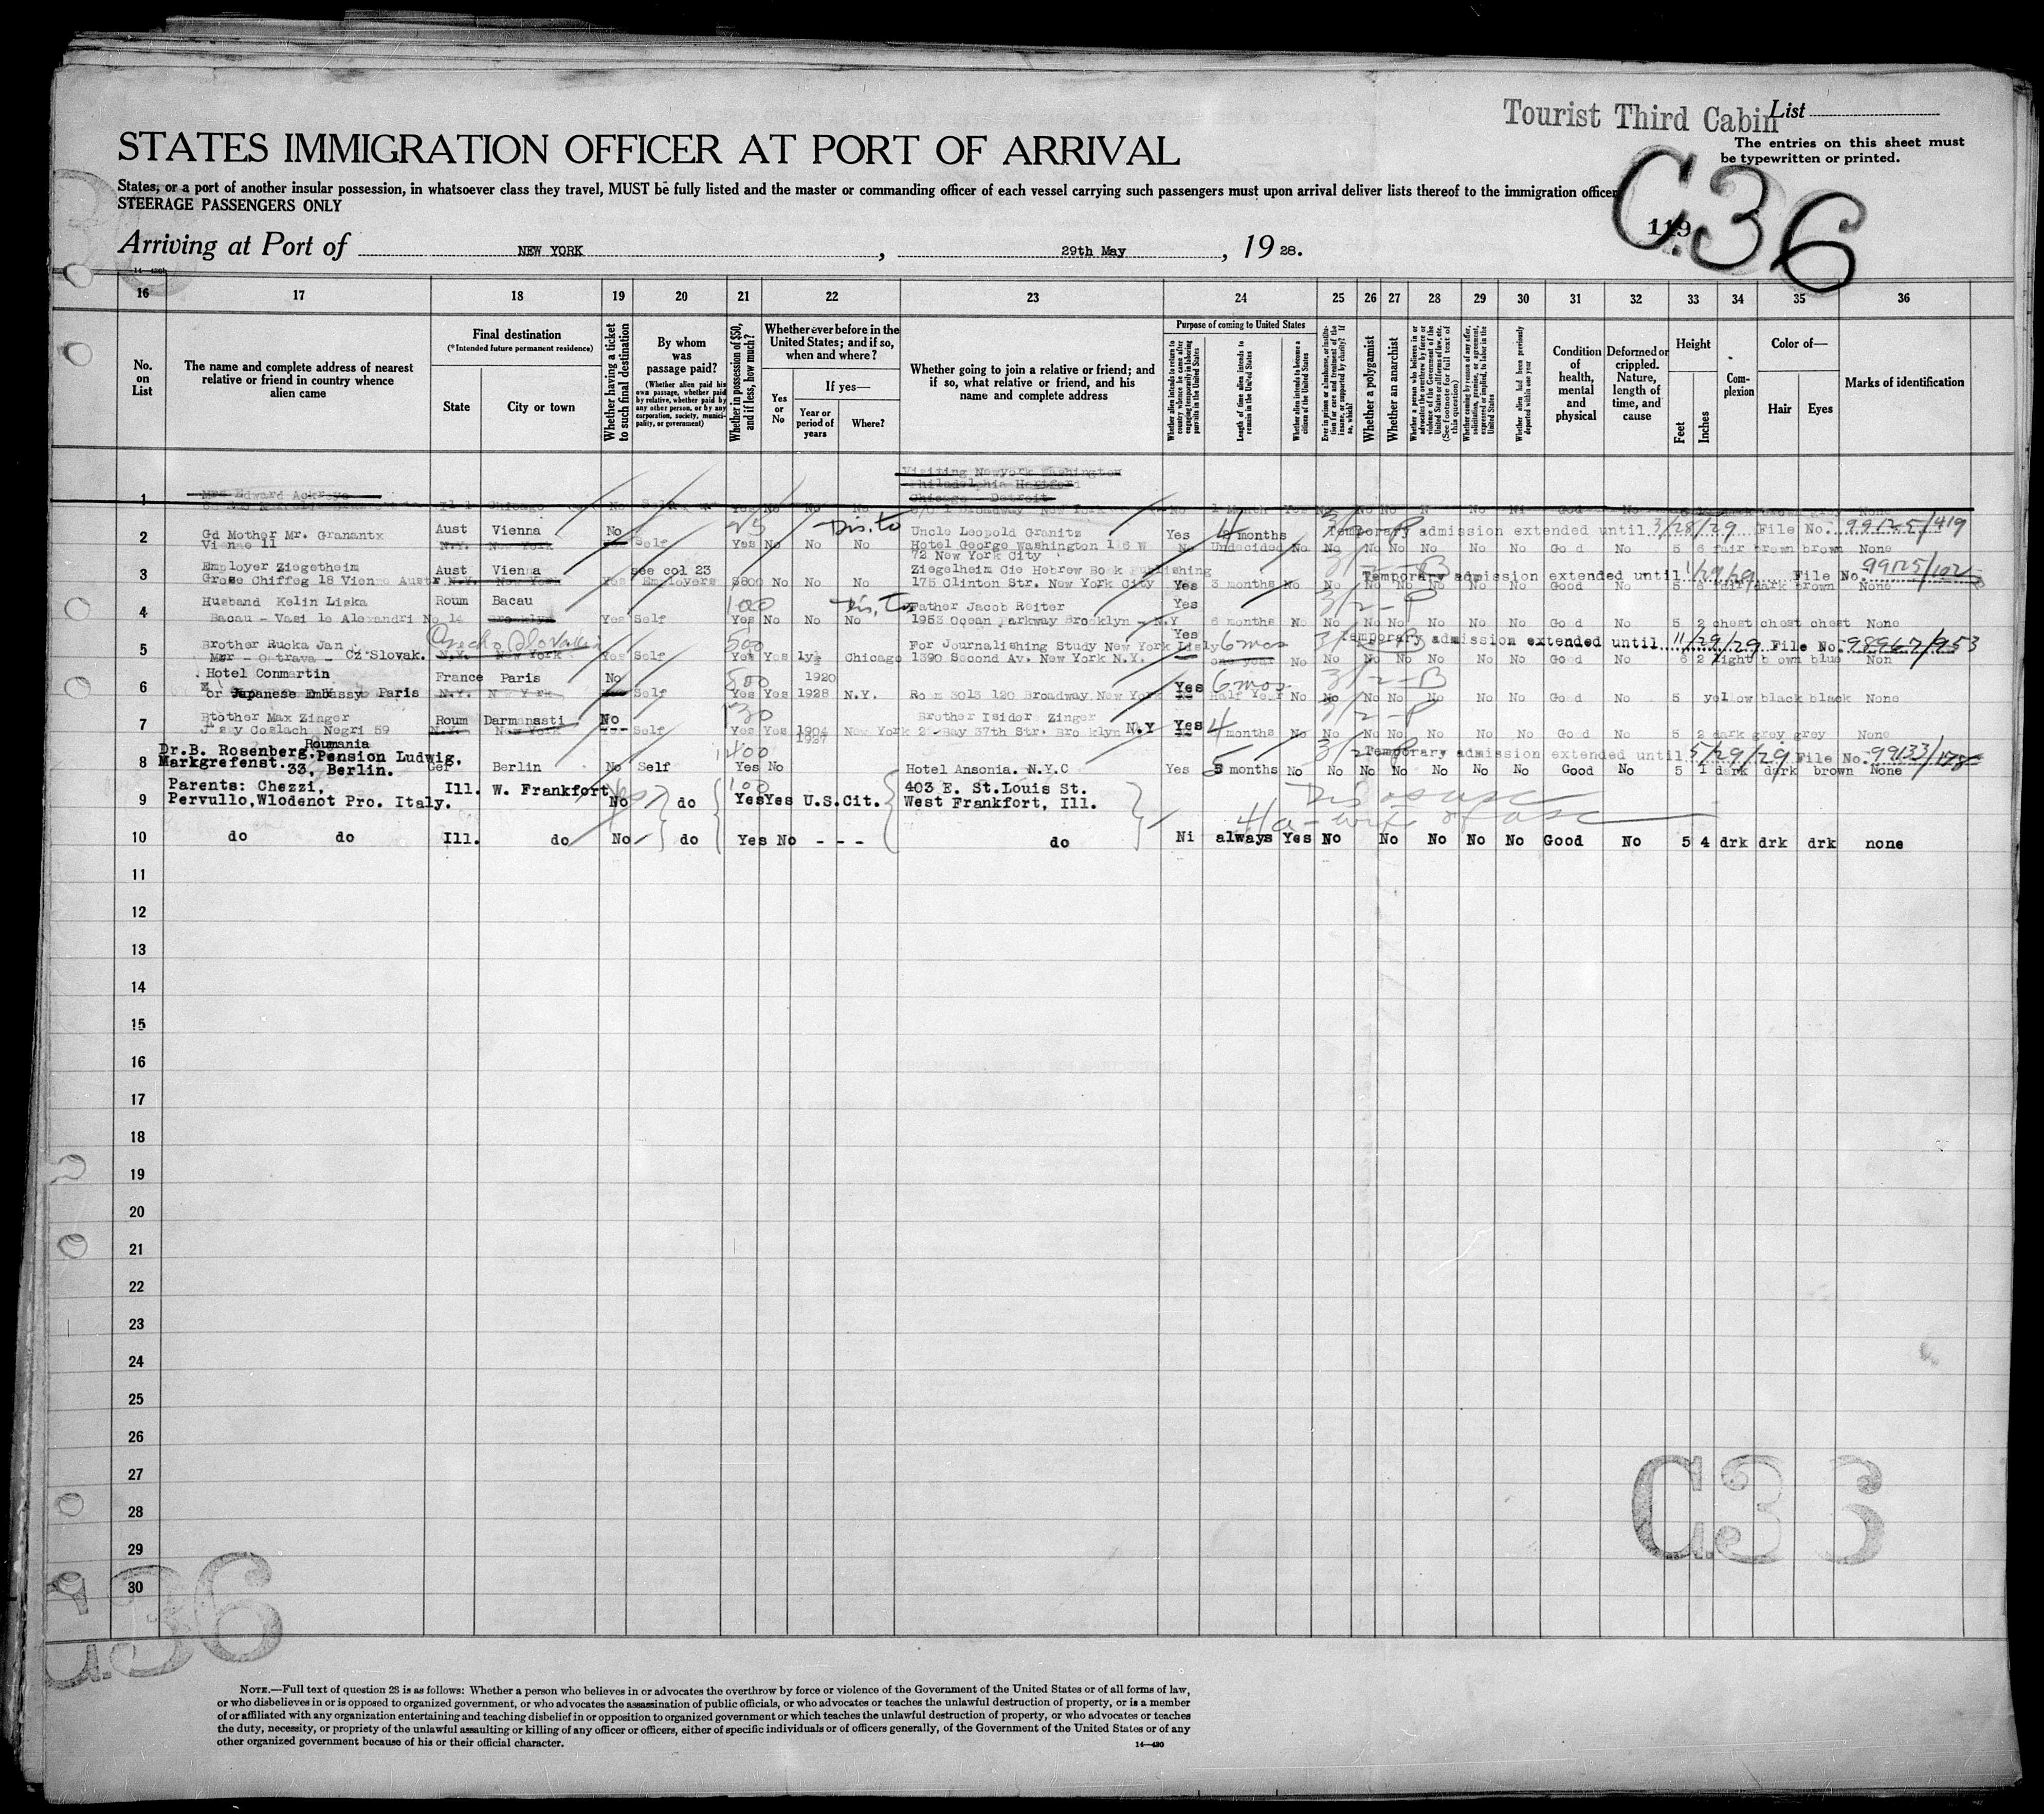 Tourist Third Cabin
List
STATES IMMIGRATION OFFICER AT PORT OF ARRIVAL
The entries on this sheet must
be typewritten or printed.
States, or a port of another insular possession, in whatsoever class they travel, MUST be fully listed and the master or commanding officer of each vessel carrying such passengers must upon arrival deliver lists thereof to the immigration officer
STEERAGE PASSENGERS ONLY
C.36
119
Arriving at Port of NEW YORK, 29th May, 19 28.
16 17 18 19 20 21 22 23 24 25 26 27 28 29 30 31 32 33 34 35 36
No. on List
The name and complete address of nearest
relative or friend in country whence
alien came
Final destination
(*Intended future permanent residence)
State
City or town
Whether having a ticket
to such final destination
By whom
was
passage paid?
(Whether alien paid his
own passage, whether paid
by relative, whether paid by
any other person, or by any
corporation, society, munici-
pality, or government)
Whether in possession of $50,
and if less, how much?
Whether ever before in the
United States; and if so,
when and where?
Yes or No
If yes—
Year or
period of
years
Where?
Whether going to join a relative or friend; and
if so, what relative or friend, and his
name and complete address
Purpose of coming to United States
Whether alien intends to return to
country whence he came after
engaging temporarily in laboring
pursuits in the United States
Length of time alien intends to
remain in the United States
Whether alien intends to become a
citizen of the United States
Ever in prison or almshouse, or institu-
tion for care and treatment of the
insane, or supported by charity? If
so, which?
Whether a polygamist
Whether an anarchist
Whether a person who believes in or
advocates the overthrow by force or
violence of the Government of the
United States or all forms of law, etc.
(See footnote for full text of
this question)
Whether coming by reason of any offer,
solicitation, promise, or agreement,
expressed or implied, to labor in the
United States
Whether alien had been previously
deported within one year
Condition
of
health,
mental
and
physical
Deformed or
crippled.
Nature,
length of
time, and
cause
Height
Feet
Inches
Com-
plexion
Color of—
Hair
Eyes
Marks of identification
Visiting Newyork Washington
Philadelphia Hartford
Chicago - Detroit
1 Mrs Edward Ackroyd Chicago No Yes No No No 1 Month Yes None
25 Dis. to
2 Gd Mother Mr. Granantx Aust Vienna No Uncle Leopold Granitz Yes 4 months Temporary admission extended until 3/28/29 File No. 99125/419
N.Y. New York Self Yes No No No Hotel George Washington No Undecided No No No No No No No Good No 5 6 fair brown brown None
72 New York City
3 Employer Ziegetheim Aust Vienna see col 23 Ziegelheim Cie Hebrew Book Publishing Temporary admission extended until 1/29/29 File No. 99125/102
Grose Chiffeg 18 N.Y. New York Yes Employers No No No 175 Clinton Str. New York City Yes 3 months No No No No No No No Good No 5 6 fair dark brown None
4 Husband Kelin Liska Roum Bacau 100 Dis. to Father Jacob Reiter Yes 3/2-P
Bacau - Vasi le Alexandri No 14 Brooklyn Yes Self Yes No No No 1953 Ocean Parkway Brooklyn - N.Y 6 months No No No No No No No Good No 5 2 chest chest chest None
5 Brother Rucka Jan Czecho Slovakia 500 For Journalishing Study New York Yes 6 mos Temporary admission extended until 11/29/29 File No. 98967/953
Mar - Ostrava - Cz Slovak. N.Y. New York Yes Self Yes Yes 1y½ Chicago 1390 Second Av. New York N.Y. one year No No No No No No No Good No 6 2 light brown blue Non
6 Hotel Conmartin France Paris No 500 1920 Yes 6 mos 3/2-B
or Japanese Embassy Paris N.Y. New York Self Yes Yes 1928 N.Y. Room 3013 120 Broadway. New York Half Year No No No No No No No Good No 5 yellow black black None
7 Btother Max Zinger Roum Darmanasti No 130 Brother Isidor Zinger Yes 4 3/2-P
Negri 59 N.Y. New York --- Self Yes Yes 1904 New York 2 - Bay 37th Str. Brooklyn N.Y months No No No No No No No Good No 5 2 dark grey grey None
Roumania 1927
8 Dr. B. Rosenberg, Pension Ludwig, 1400 Temporary admission extended until 5/29/29 File No. 99133/178
Markgrefenst. 33, Berlin. Ger Berlin No Self Yes No Hotel Ansonia. N.Y.C Yes 5 months No No No No No No No Good No 5 1 dark dark brown None
9 Parents: Chezzi, Ill. W. Frankfort Yes 100 403 E. St.Louis St.
Pervullo, Wlodenot Pro. Italy. No do Yes Yes U.S.Cit. West Frankfort, Ill.
10 do do Ill. do No do Yes No - - - do Ni always Yes No No No No No Good No 5 4 drk drk drk none
11
12
13
14
15
16
17
18
19
20
21
22
23
24
25
26
27
28
29
30
C.36
C.36
NOTE.—Full text of question 28 is as follows: Whether a person who believes in or advocates the overthrow by force or violence of the Government of the United States or of all forms of law,
or who disbelieves in or is opposed to organized government, or who advocates the assassination of public officials, or who advocates or teaches the unlawful destruction of property, or is a member
of or affiliated with any organization entertaining and teaching disbelief in or opposition to organized government or which teaches the unlawful destruction of property, or who advocates or teaches
the duty, necessity, or propriety of the unlawful assaulting or killing of any officer or officers, either of specific individuals or of officers generally, of the Government of the United States or of any
other organized government because of his or their official character.
14—430